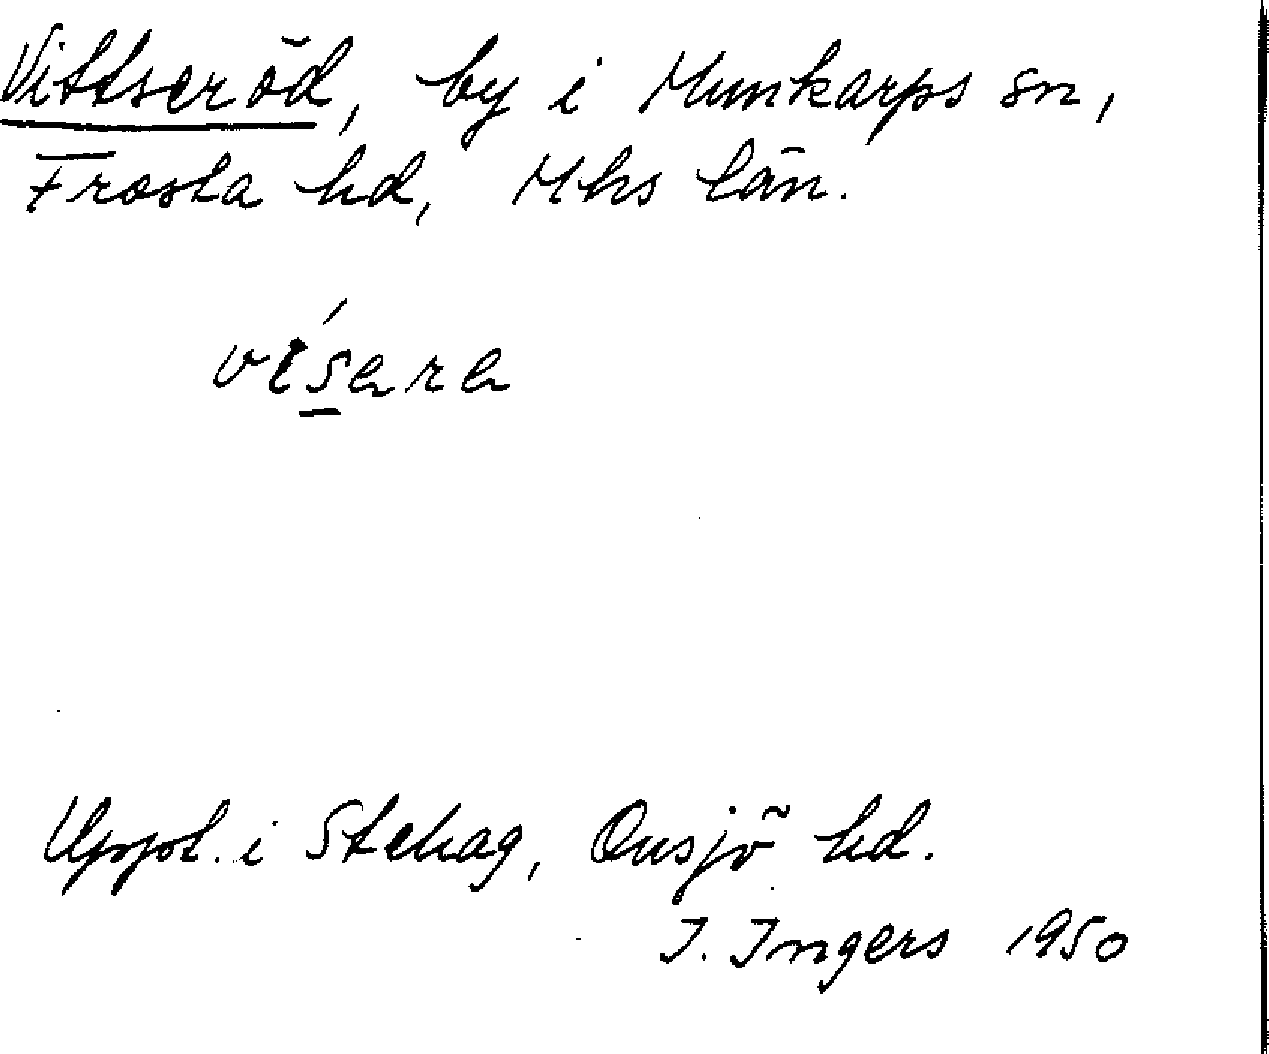 Vittseröd, by i Munkarps sn,
Frosta hd, Mhs län.
vísara
Uppt. i Stehag, Onsjö hd.
I. Ingers 1950